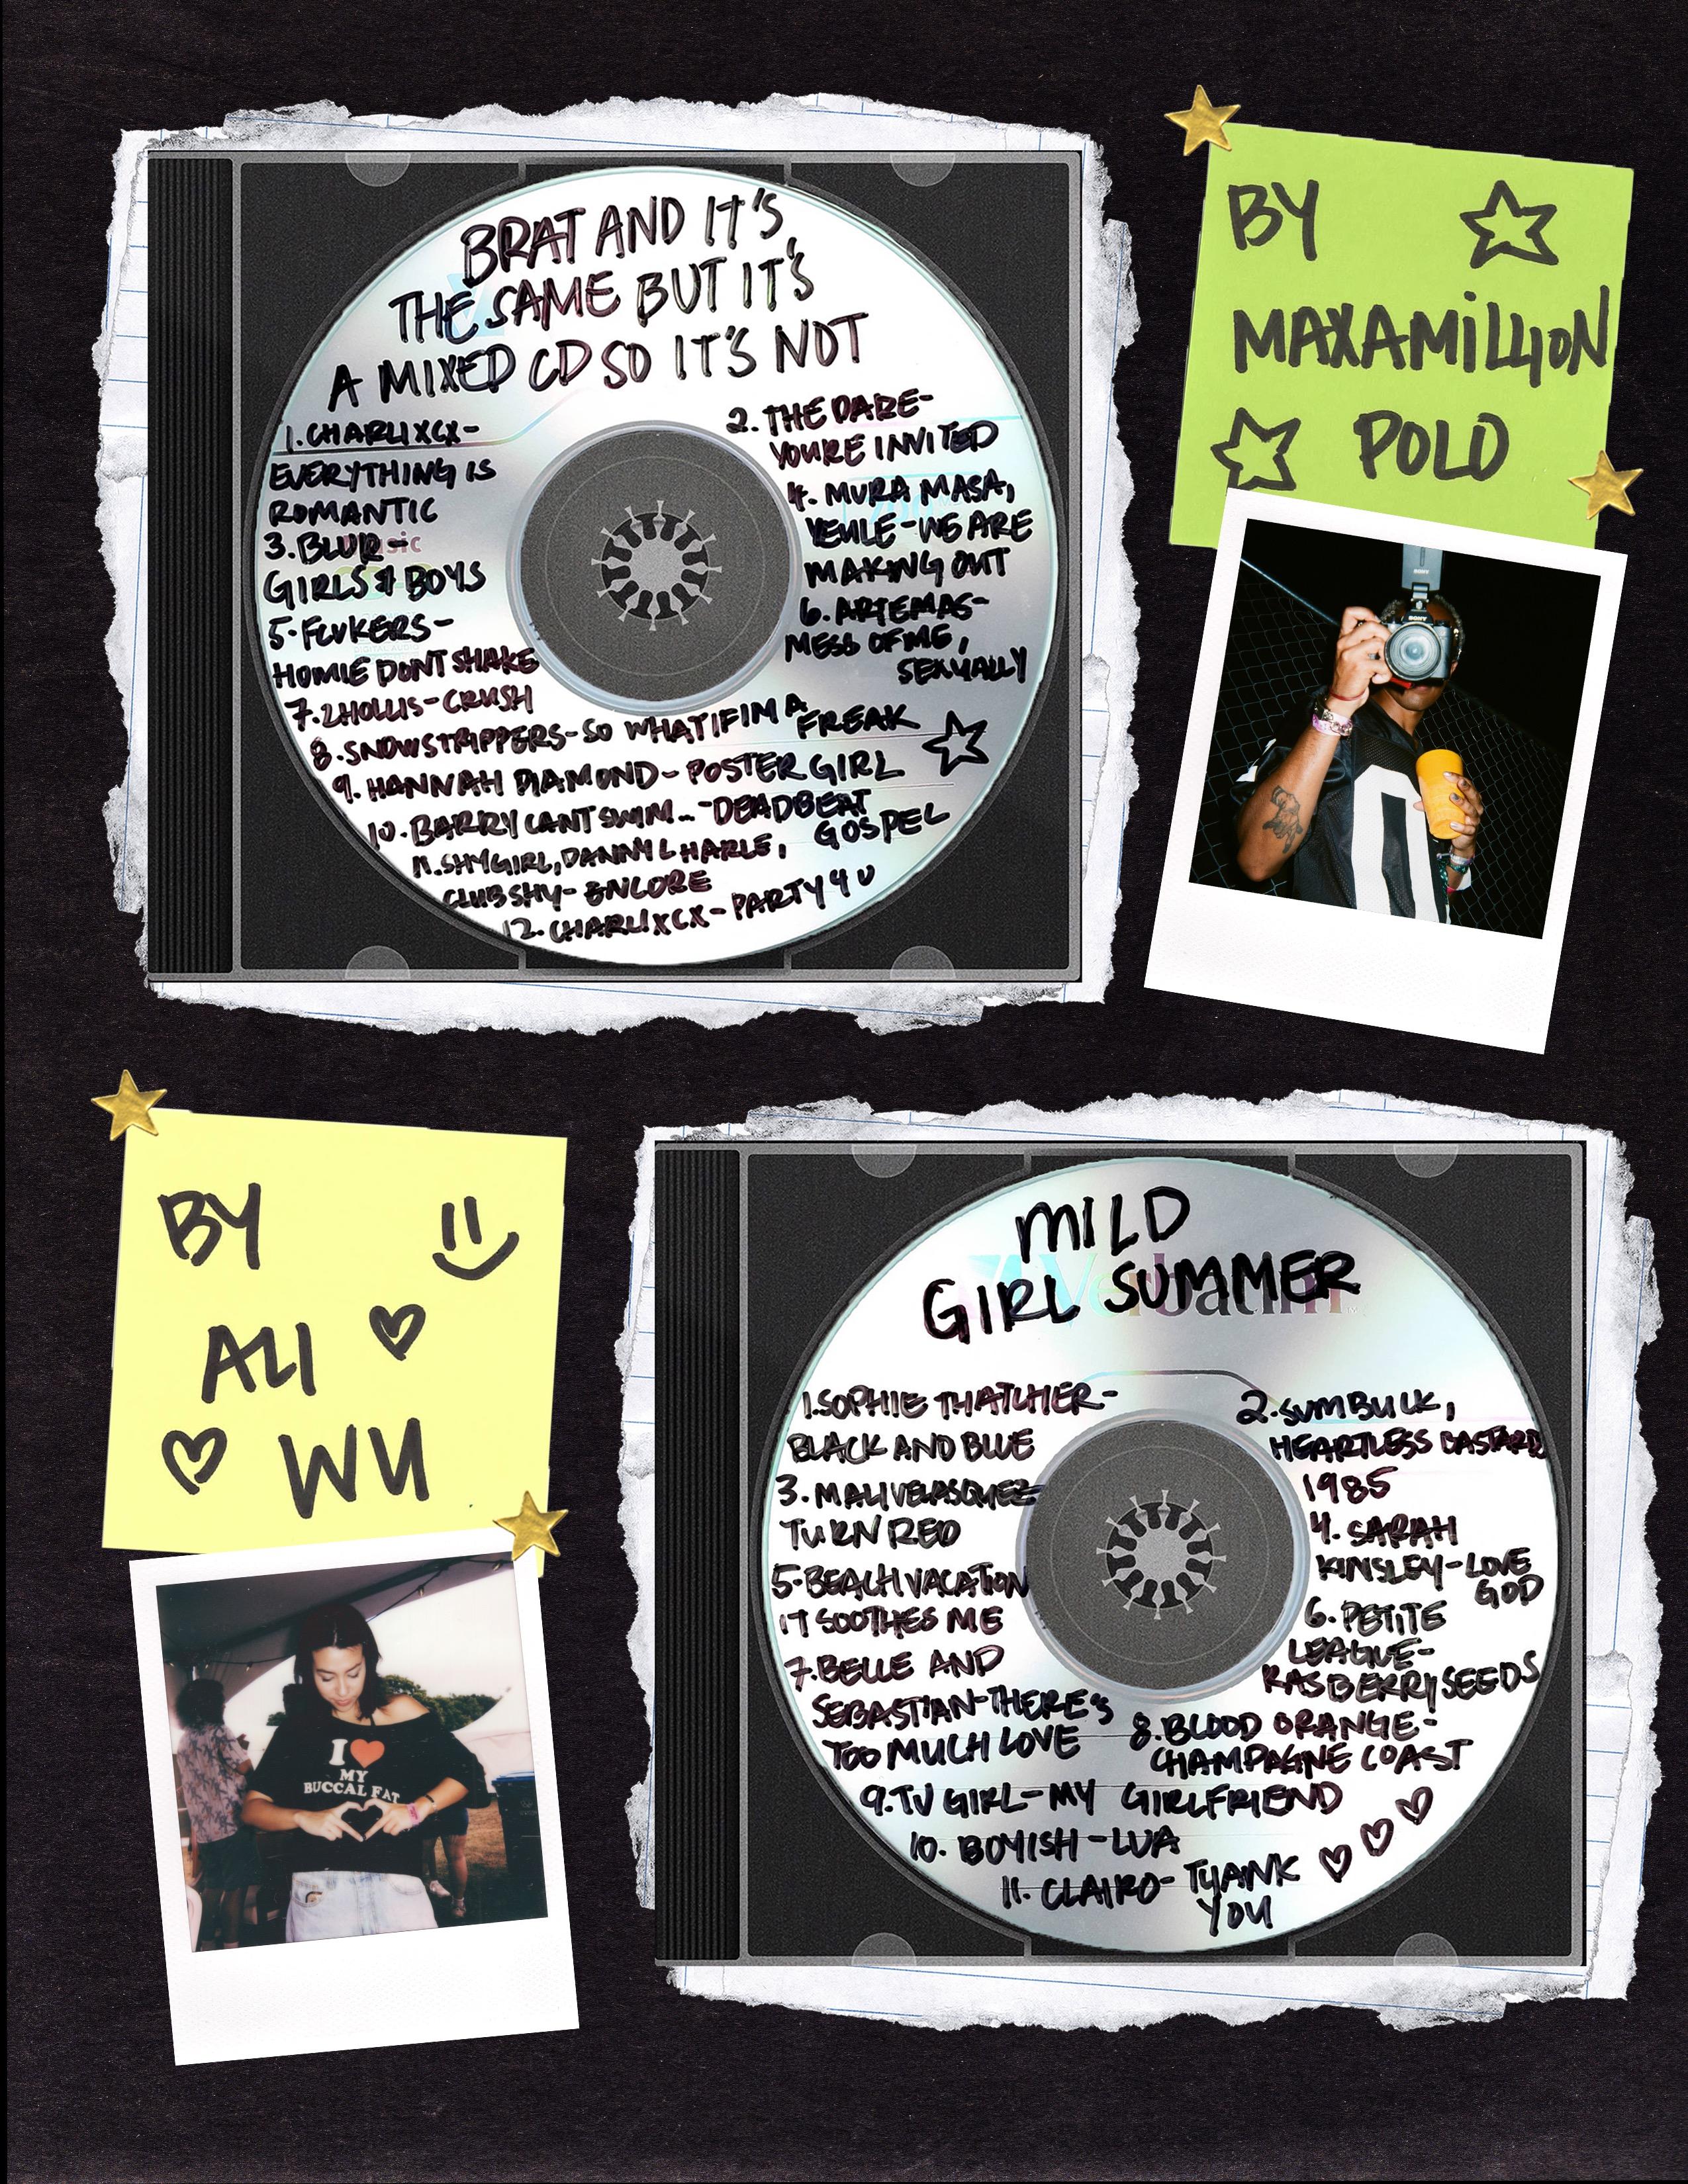 BRAT AND IT'S
THE SAME BUT IT'S
A MIXED CD SO IT'S NOT
1. CHARLI XCX -
EVERYTHING IS
ROMANTIC
2. THE DARE -
YOURE INVITED
3. BLUR -
GIRLS & BOYS
4. MURA MASA,
YEULE - WE ARE
MAKING OUT
5. FCUKERS -
HOMIE DONT SHAKE
6. ARTEMAS -
MESS OF ME,
SEXUALLY
7. 2HOLLIS - CRUSH
8. SNOW STRIPPERS - SO WHAT IF IM A
FREAK
9. HANNAH DIAMOND - POSTER GIRL
10. BARRY CANT SWIM.. - DEADBEAT
GOSPEL
11. SHYGIRL, DANNY L HARLE,
CLUB SHY - ENCORE
12. CHARLI XCX - PARTY 4 U
BY
MAXAMILLION
POLO
SONY
SONY
0
BY
ALI
WU
I ❤
MY
BUCCAL FAT
MILD
GIRL SUMMER
Verbatim
1. SOPHIE THATCHER -
BLACK AND BLUE
2. SUMBUCK,
HEARTLESS BASTARD
1985
3. MALI VELASQUEZ
TURN RED
4. SARAH
KINSLEY - LOVE
GOD
5. BEACH VACATION
IT SOOTHES ME
6. PETITE
LEAGUE -
RASBERRY SEEDS
7. BELLE AND
SEBASTIAN - THERE'S
TOO MUCH LOVE
8. BLOOD ORANGE -
CHAMPAGNE COAST
9. TV GIRL - MY GIRLFRIEND
10. BOYISH - LUA
11. CLAIRO - THANK
YOU